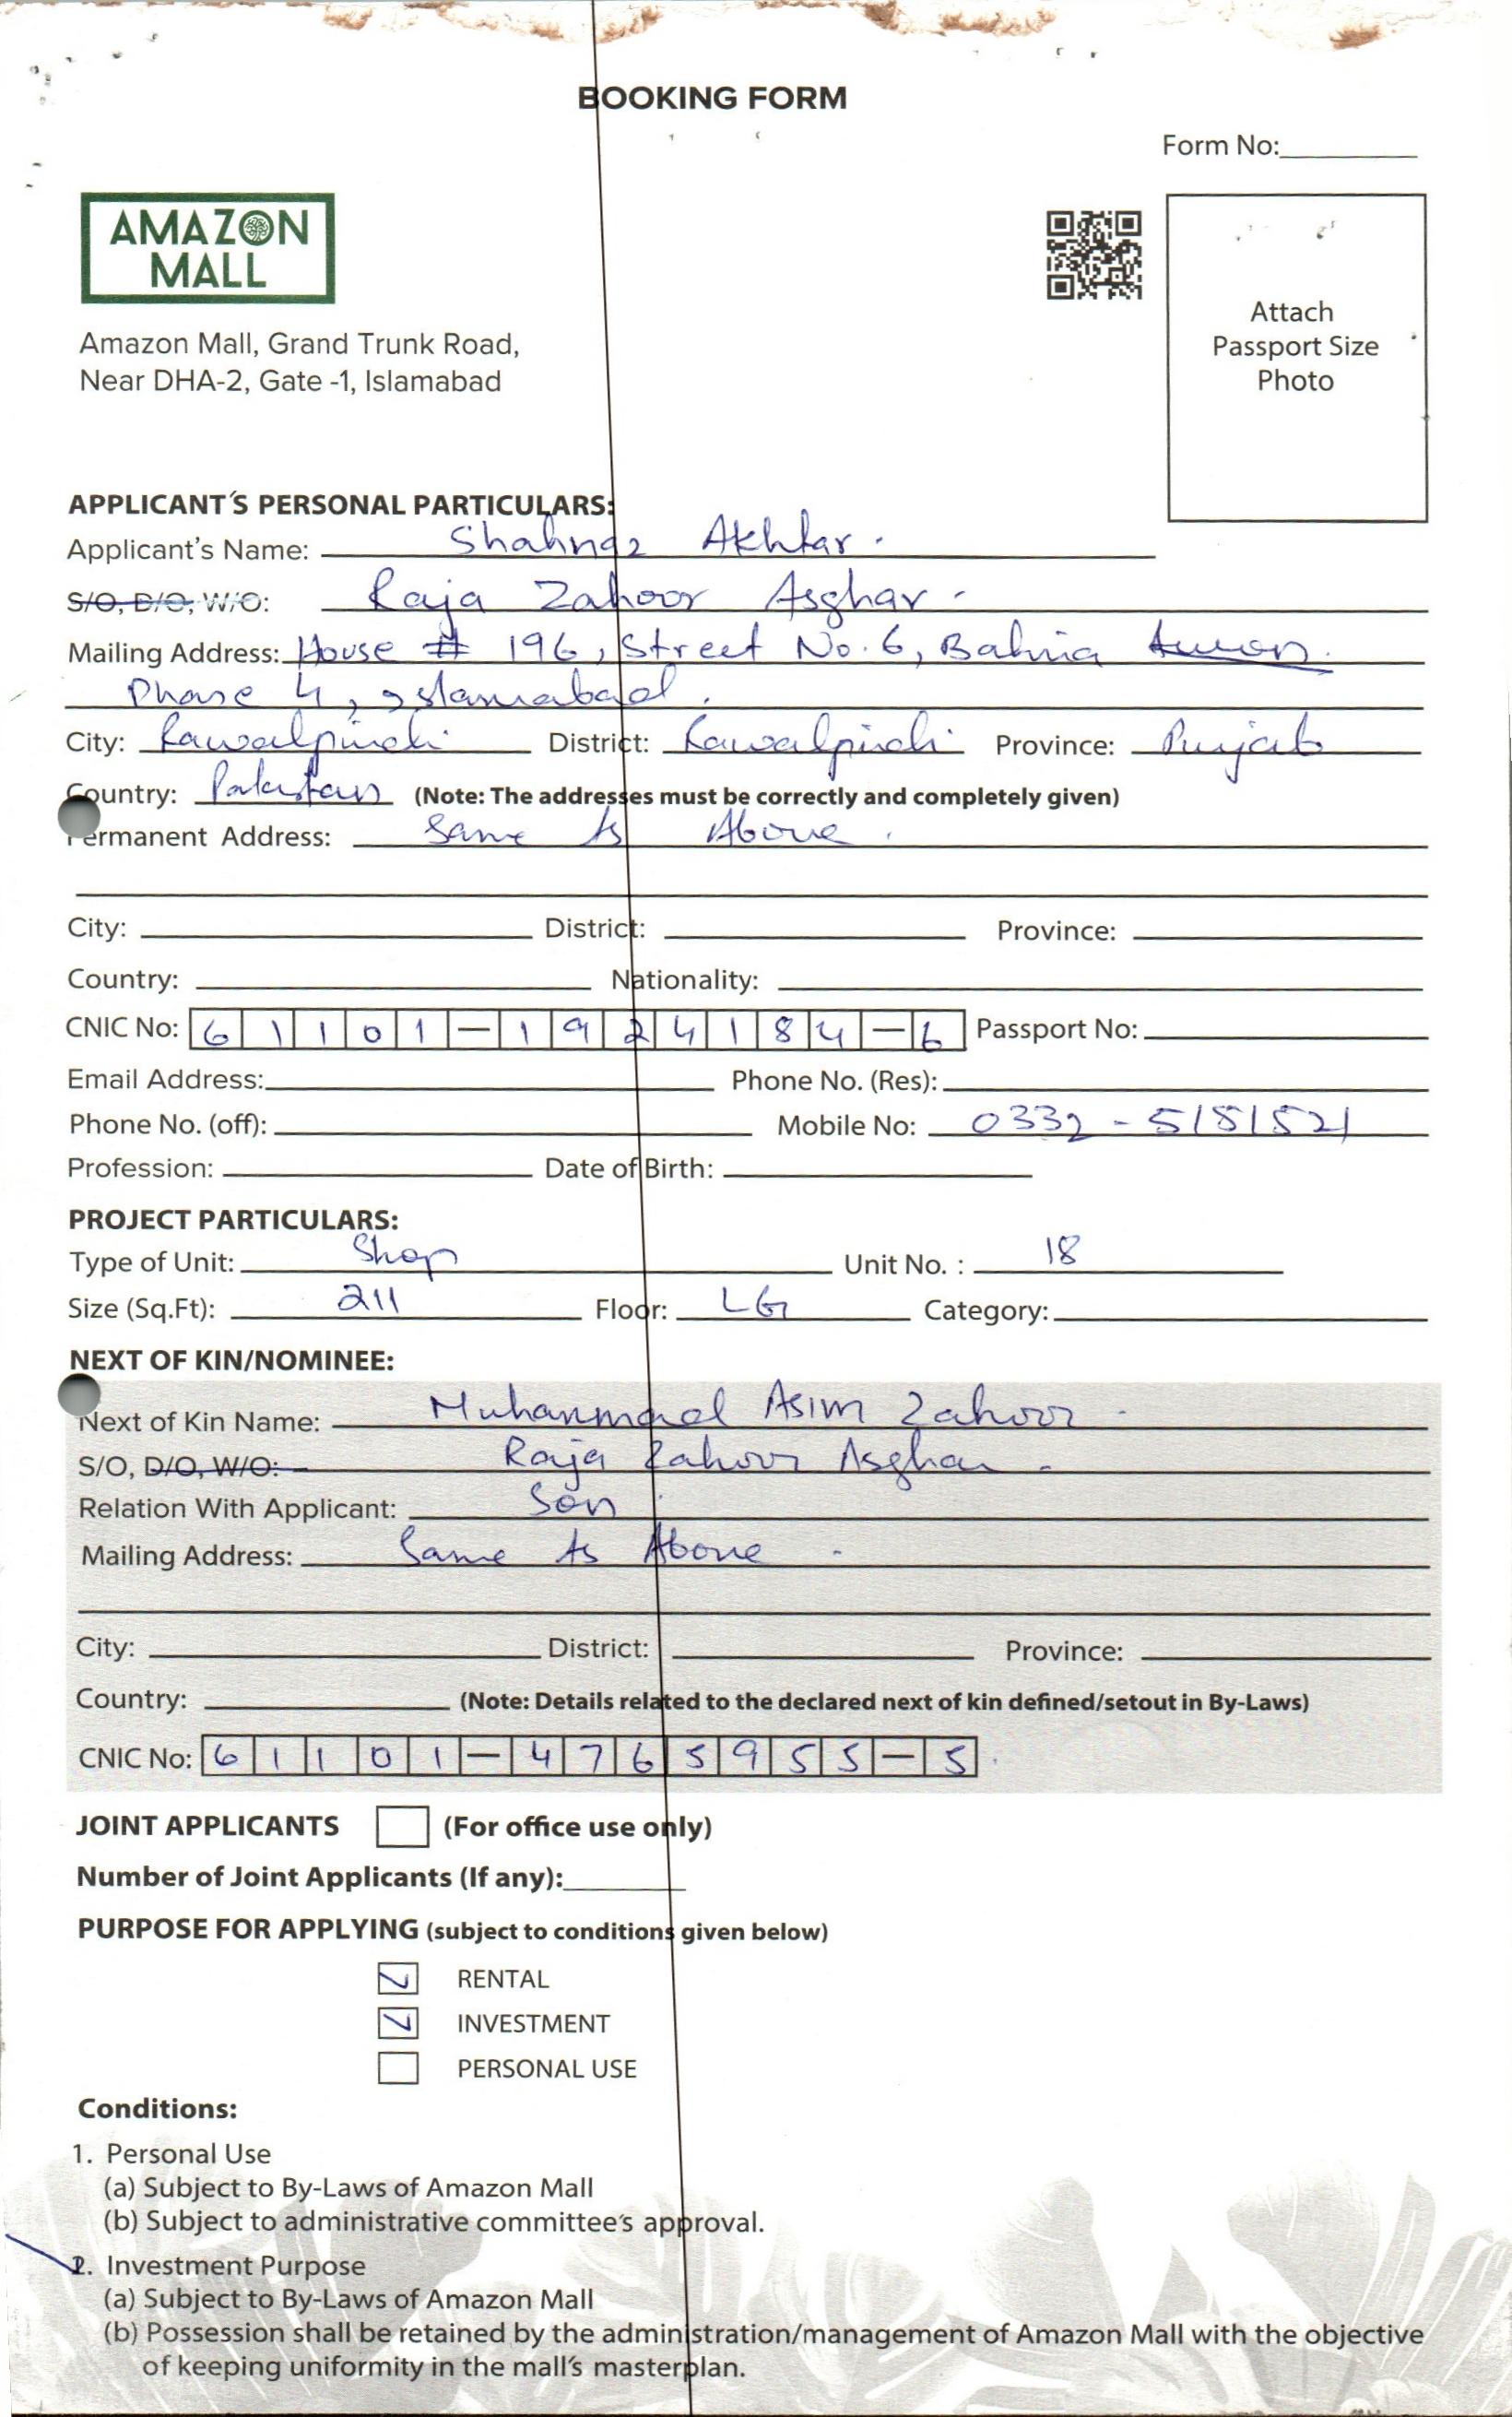 BOOKING FORM
Form No:
AMAZON
MALL
Amazon Mall, Grand Trunk Road,
Near DHA-2, Gate -1, Islamabad
Attach
Passport Size
Photo
APPLICANT'S PERSONAL PARTICULARS:
Applicant's Name: Shahnaz Akhtar.
S/O, D/O, W/O: Raja Zahoor Asghar -
Mailing Address: House # 196, Street No. 6, Bahria
Phase 4, Islamabad.
City: Rawalpindi District: Rawalpindi Province: Punjab
Country: Pakistan (Note: The addresses must be correctly and completely given)
Permanent Address: Same As Above.
City: District: Province:
Country: Nationality:
CNIC No: 61101-1924184-6 Passport No:
Email Address: Phone No. (Res):
Phone No. (off): Mobile No: 0332 - 5151521
Profession: Date of Birth:
PROJECT PARTICULARS:
Type of Unit: Shop Unit No. : 18
Size (Sq.Ft): 211 Floor: LG Category:
NEXT OF KIN/NOMINEE:
Next of Kin Name: Muhammad Asim Zahoor -
S/O, D/O, W/O: Raja Zahoor Asghar -
Relation With Applicant: Son
Mailing Address: Same As Above -
City: District: Province:
Country: (Note: Details related to the declared next of kin defined/setout in By-Laws)
CNIC No: 61101-4765955-5
JOINT APPLICANTS (For office use only)
Number of Joint Applicants (If any):
PURPOSE FOR APPLYING (subject to conditions given below)
RENTAL
INVESTMENT
PERSONAL USE
Conditions:
1. Personal Use
(a) Subject to By-Laws of Amazon Mall
(b) Subject to administrative committee's approval.
2. Investment Purpose
(a) Subject to By-Laws of Amazon Mall
(b) Possession shall be retained by the administration/management of Amazon Mall with the objective
of keeping uniformity in the mall's masterplan.